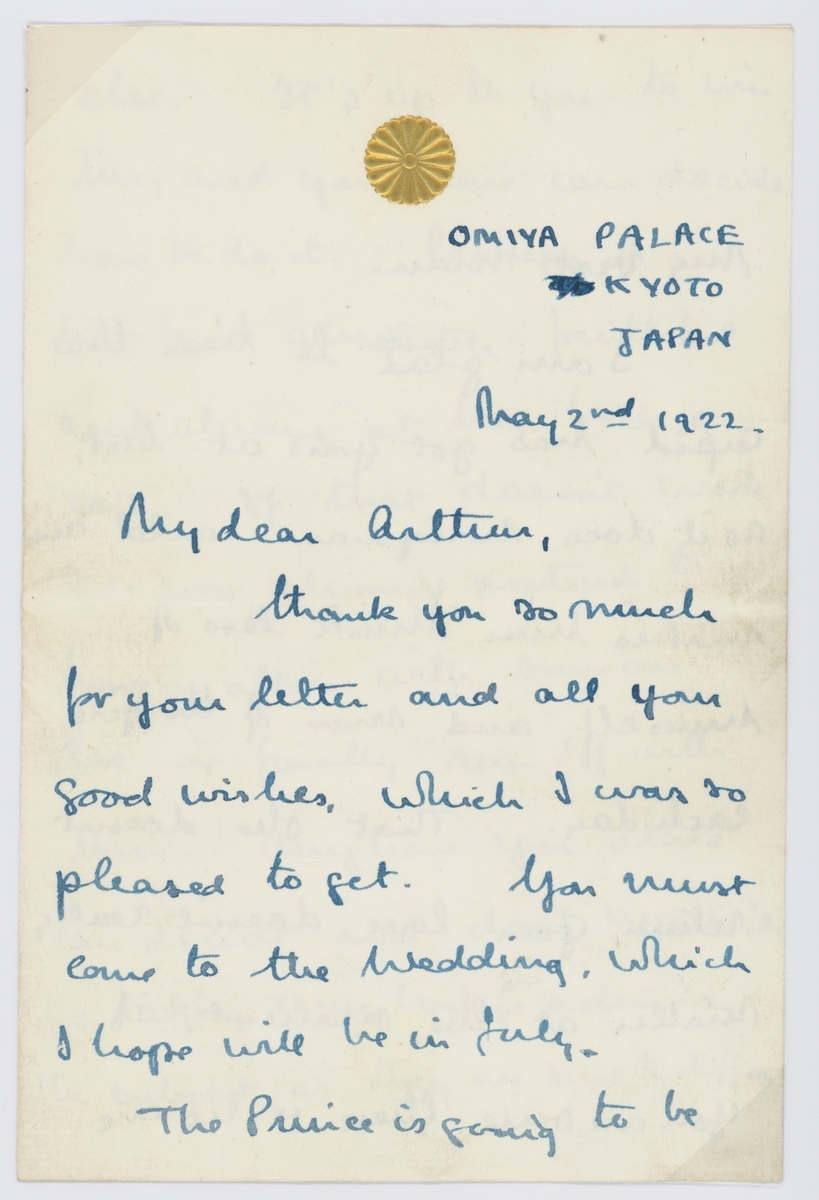 OMIYA PALACE
KYOTO
JAPAN
May 2nd 1922.
My dear Arthur,
Thank you so much
for your letter and all your
good wishes, which I was so
pleased to get. You must
come to the Wedding, which
I hope will be in July.
The Prince is going to be